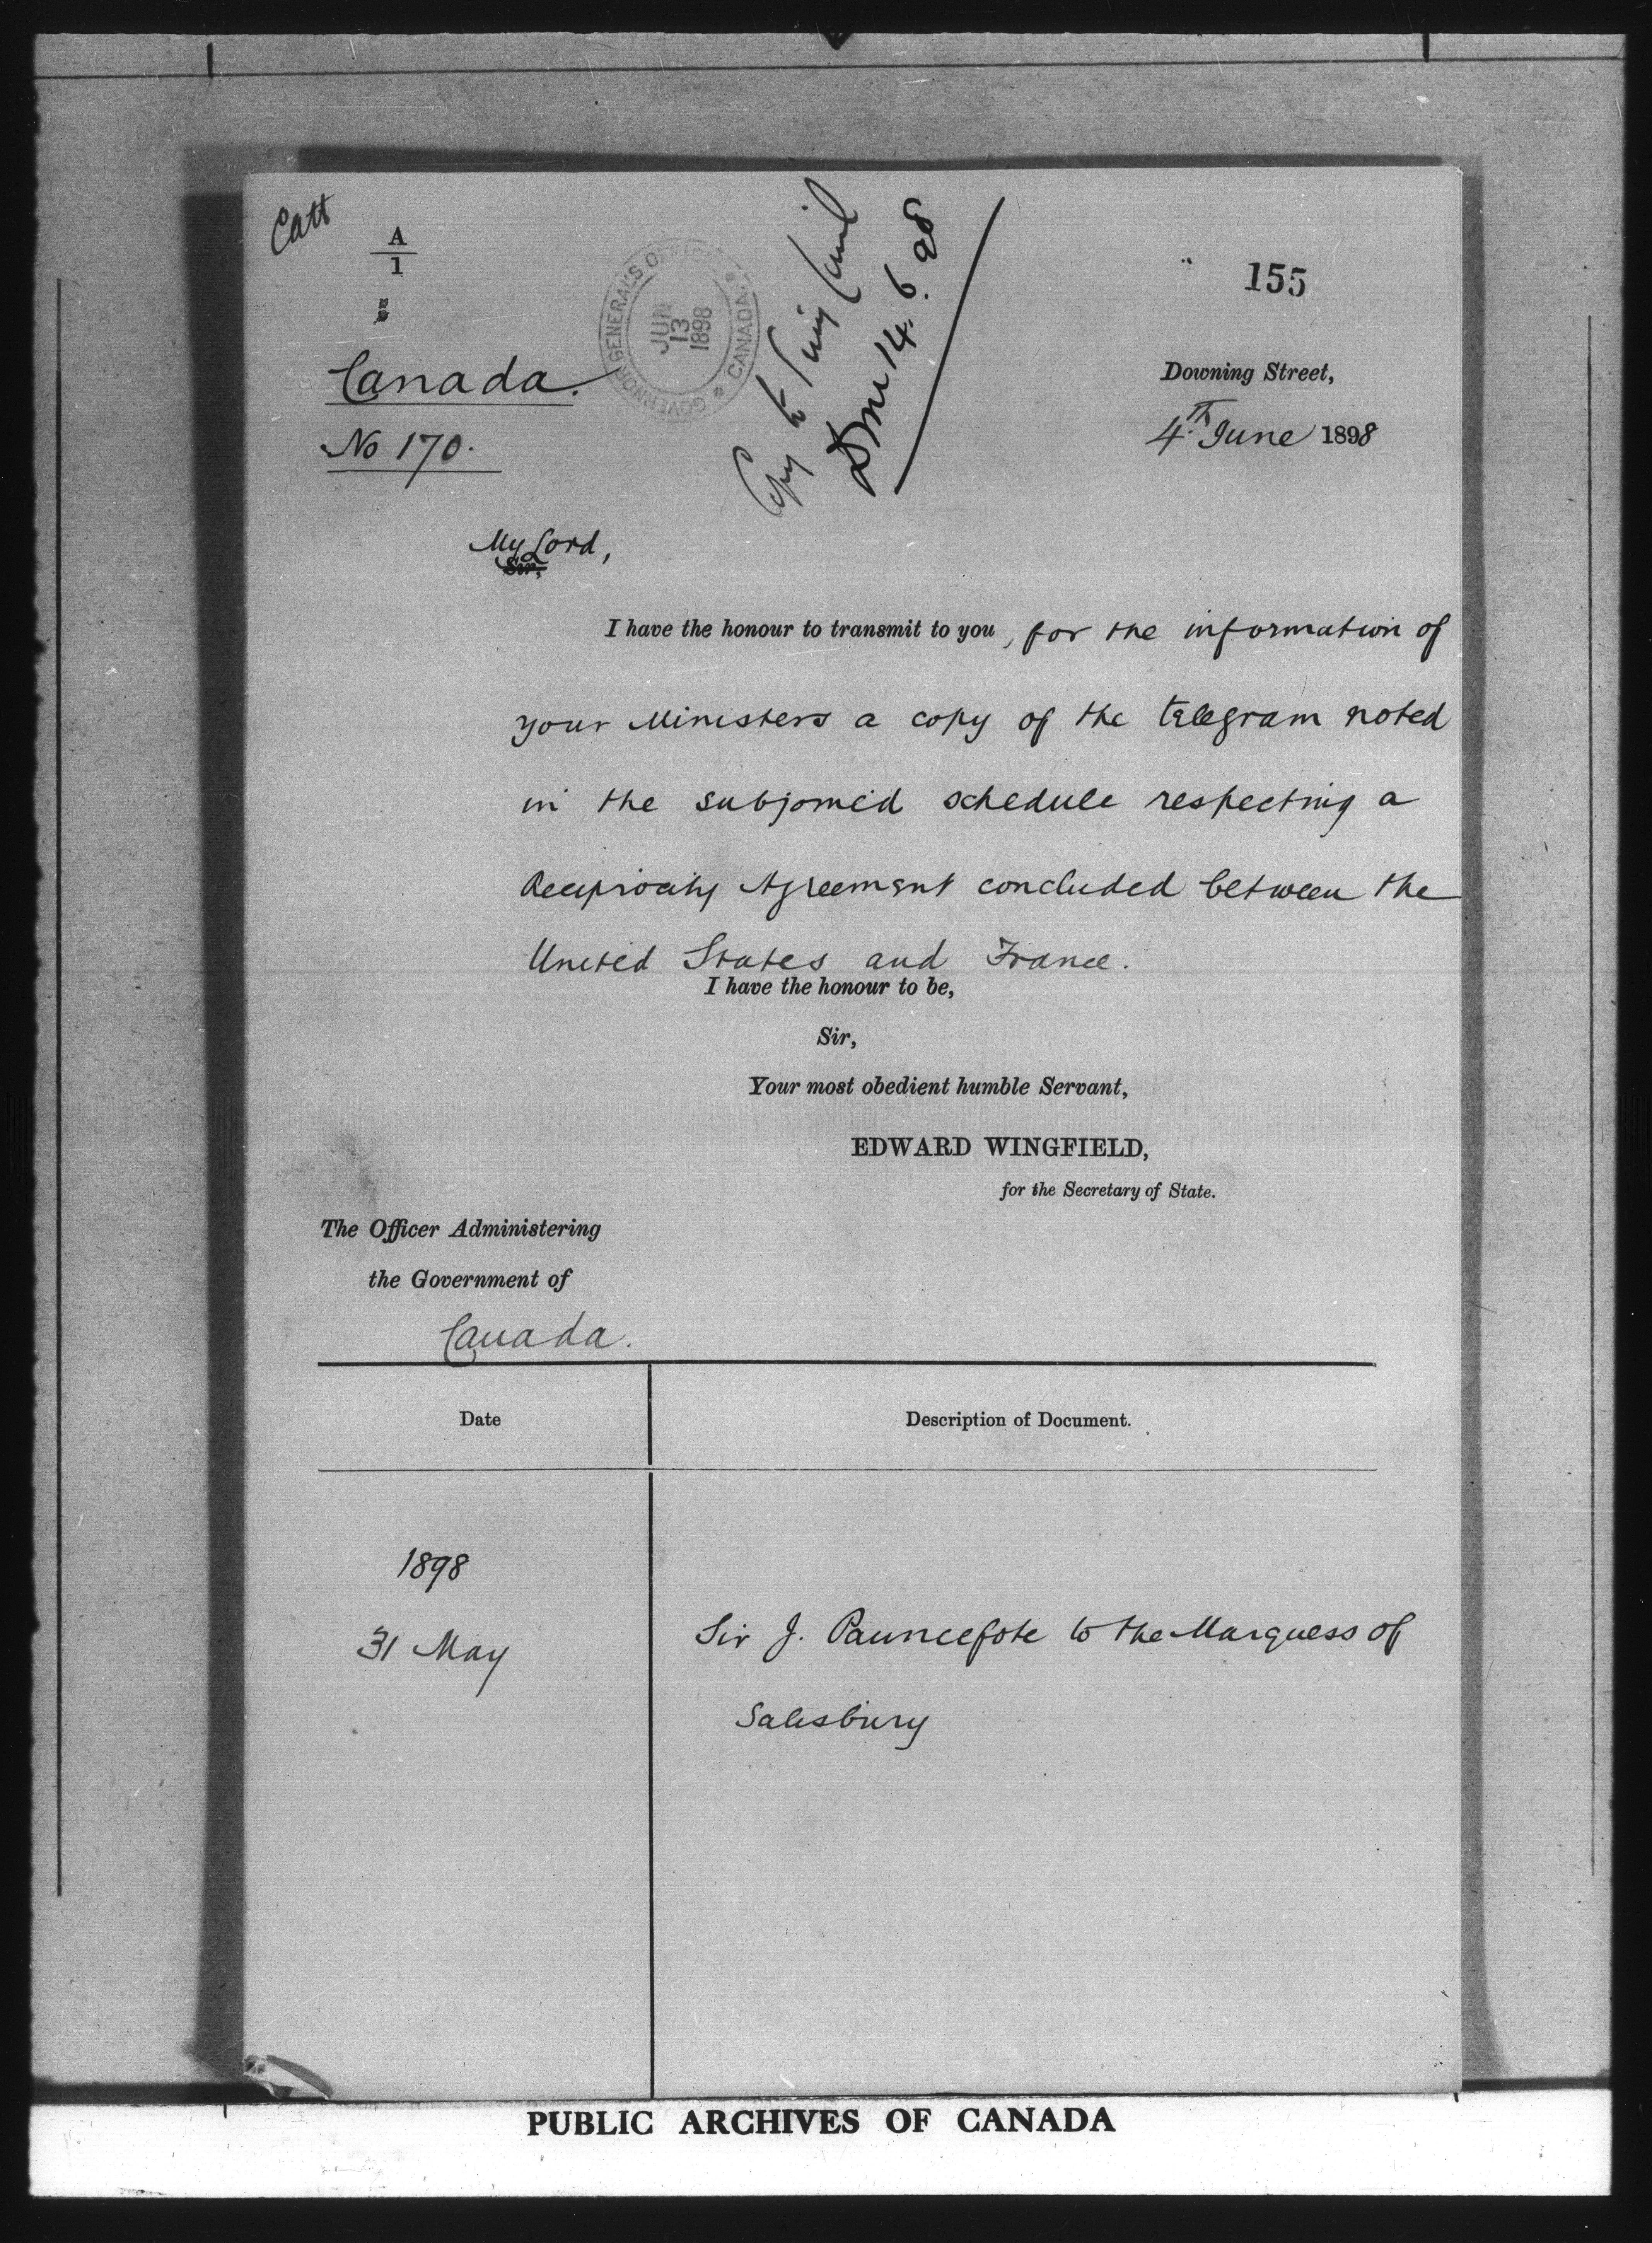 Catt
A
1
GOVERNOR GENERAL'S OFFICE * CANADA *
JUN
13
1898
Copy to Privy Council
14.6.98
155
Canada.
No 170.
Downing Street,
4th June 1898
My Lord,
Sir,
I have the honour to transmit to you, for the information of
your Ministers a copy of the telegram noted
in the subjoined schedule respecting a
Reciprocity Agreement concluded between the
United States and France.
I have the honour to be,
Sir,
Your most obedient humble Servant,
EDWARD WINGFIELD,
for the Secretary of State.
The Officer Administering
the Government of
Canada.
Date
Description of Document.
1898
31 May
Sir J. Pauncefote to the Marquess of
Salisbury
PUBLIC ARCHIVES OF CANADA